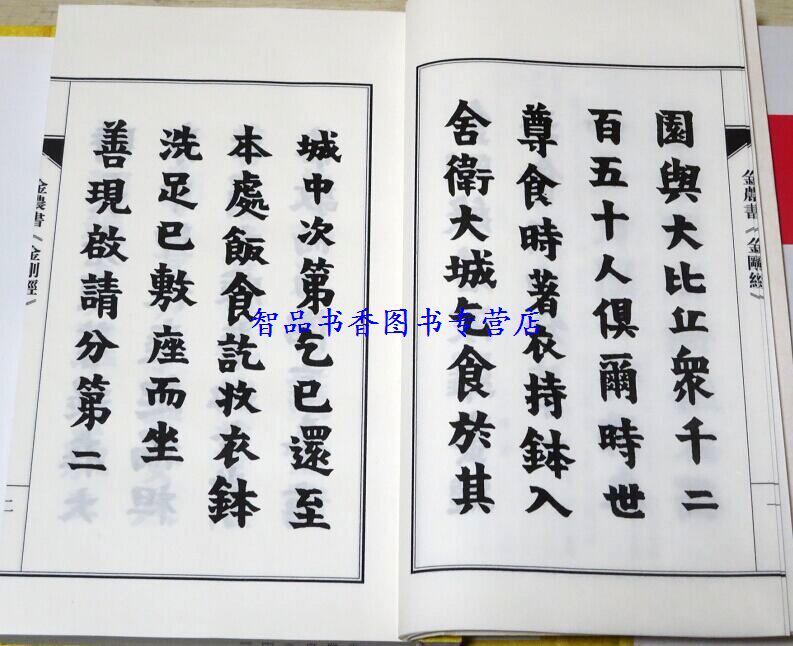 園與大比丘衆千二
百五十人俱爾時世
尊食時著衣持鉢入
舍衛大城乞食於其
城中次第乞已還至
本處飯食訖收衣鉢
洗足已敷座而坐
善現啟請分第二
金農書《金剛經》
金農書《金剛經》
二
智品书香图书专营店